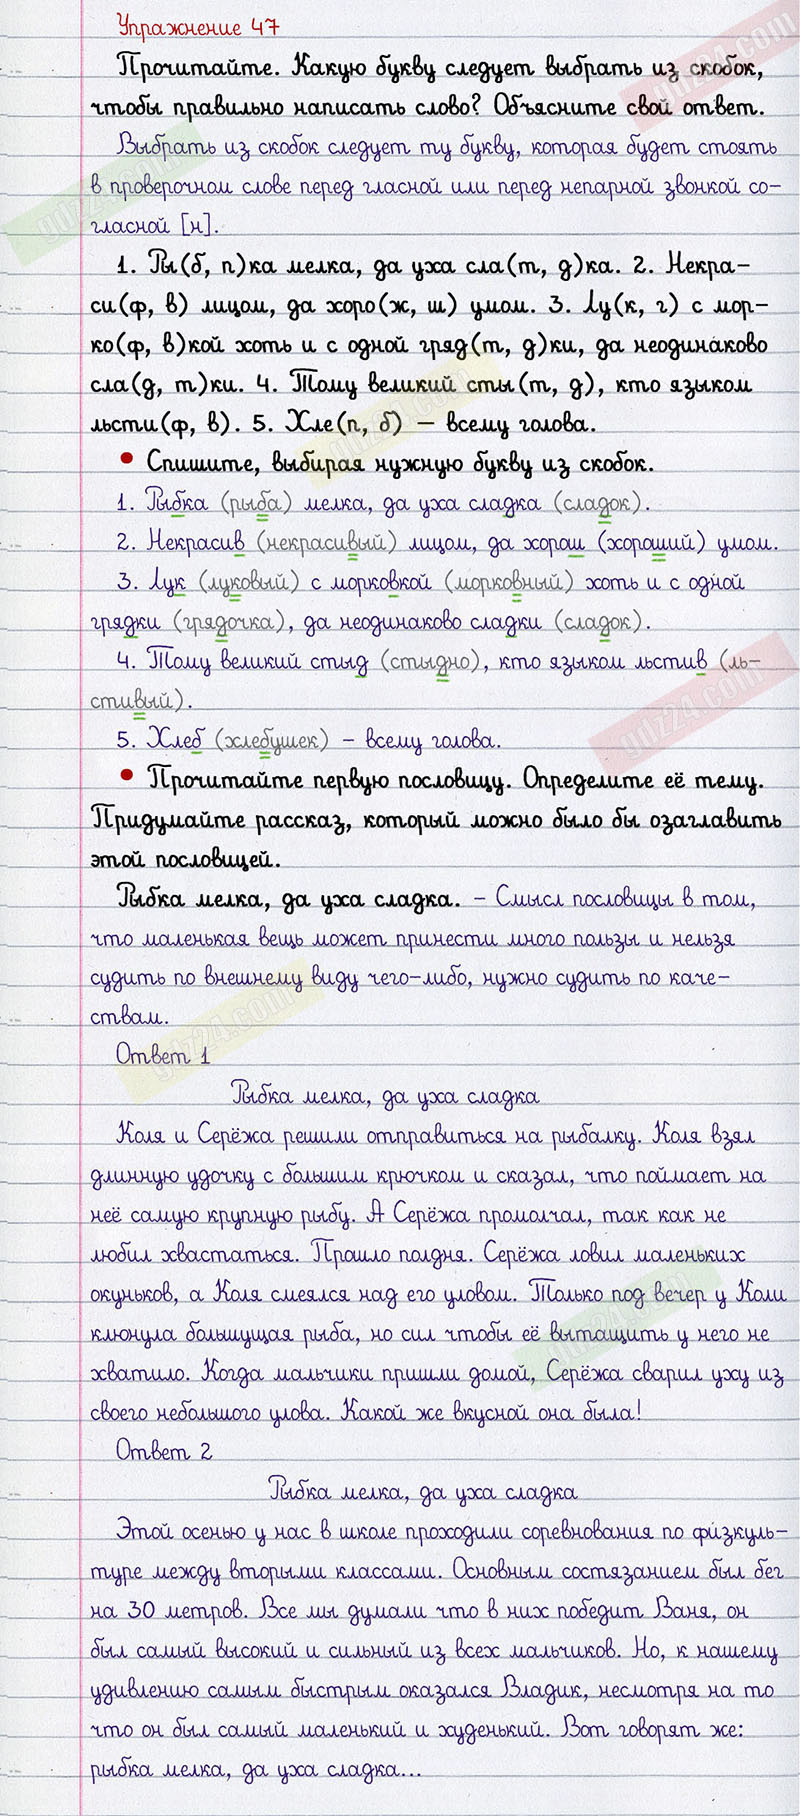 Упражнение 47
Прочитайте. Какую букву следует выбрать из скобок,
чтобы правильно написать слово? Объясните свой ответ.
Выбрать из скобок следует ту букву, которая будет стоять
в проверочном слове перед гласной или перед непарной звонкой со-
гласной [н].
1. Ры(б, п)ка мелка, да уха сла(т, д)ка. 2. Некра-
си(ф, в) лицом, да хоро(ж, ш) умом. 3. Лу(к, г) с мор-
ко(ф, в)кой хоть и с одной гряд(т, д)ки, да неодина́ково
сла(д, т)ки. 4. Тому великий сты(т, д), кто языком
льсти(ф, в). 5. Хле(п, б) — всему голова.
• Спишите, выбирая нужную букву из скобок.
1. Рыбка (рыба) мелка, да уха сладка (сладок).
2. Некрасив (некрасивый) лицом, да хорош (хороший) умом.
3. Лук (луковый) с морковкой (морковный) хоть и с одной
грядки (грядочка), да неодинаково сладки (сладок).
4. Тому великий стыд (стыдно), кто языком льстив (ль-
стивый).
5. Хлеб (хлебушек) – всему голова.
• Прочитайте первую пословицу. Определите её тему.
Придумайте рассказ, который можно было бы озаглавить
этой пословицей.
Рыбка мелка, да уха сладка. – Смысл пословицы в том,
что маленькая вещь может принести много пользы и нельзя
судить по внешнему виду чего-либо, нужно судить по каче-
ствам.
Ответ 1
Рыбка мелка, да уха сладка
Коля и Серёжа решили отправиться на рыбалку. Коля взял
длинную удочку с большим крючком и сказал, что поймает на
неё самую крупную рыбу. А Серёжа промолчал, так как не
любил хвастаться. Прошло полдня. Серёжа ловил маленьких
окуньков, а Коля смеялся над его уловом. Только под вечер у Коли
клюнула большущая рыба, но сил чтобы её вытащить у него не
хватило. Когда мальчики пришли домой, Серёжа сварил уху из
своего небольшого улова. Какой же вкусной она была!
Ответ 2
Рыбка мелка, да уха сладка
Этой осенью у нас в школе проходили соревнования по фи́зкуль-
туре между вторыми классами. Основным состязанием был бег
на 30 метров. Все мы думали что в них победит Ваня, он
был самый высокий и сильный из всех мальчиков. Но, к нашему
удивлению самым быстрым оказался Владик, несмотря на то
что он был самый маленький и худенький. Вот говорят же:
рыбка мелка, да уха сладка...
gdz24.com
gdz24.com
gdz24.com
gdz24.com
gdz24.com
gdz24.com